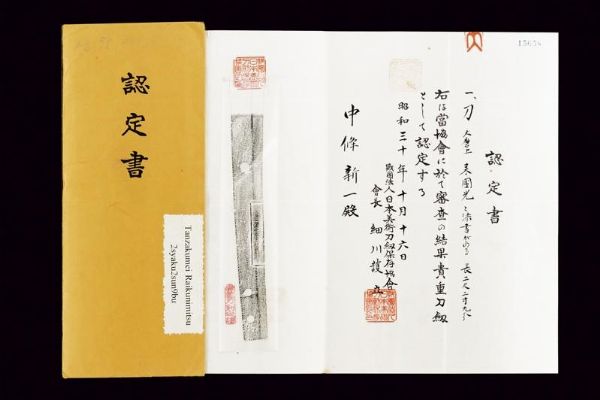 認定書
Tanzakumei Raikunimitsu
2syaku2sun9bu
認定書
一、刀
来國光と
長二尺二寸九分
右は當協會に於て審査の結果貴重刀剣
として認定する
昭和三十年十月十六日
財團法人日本美術刀剣保存協會
會長 細川護立
中條新一殿